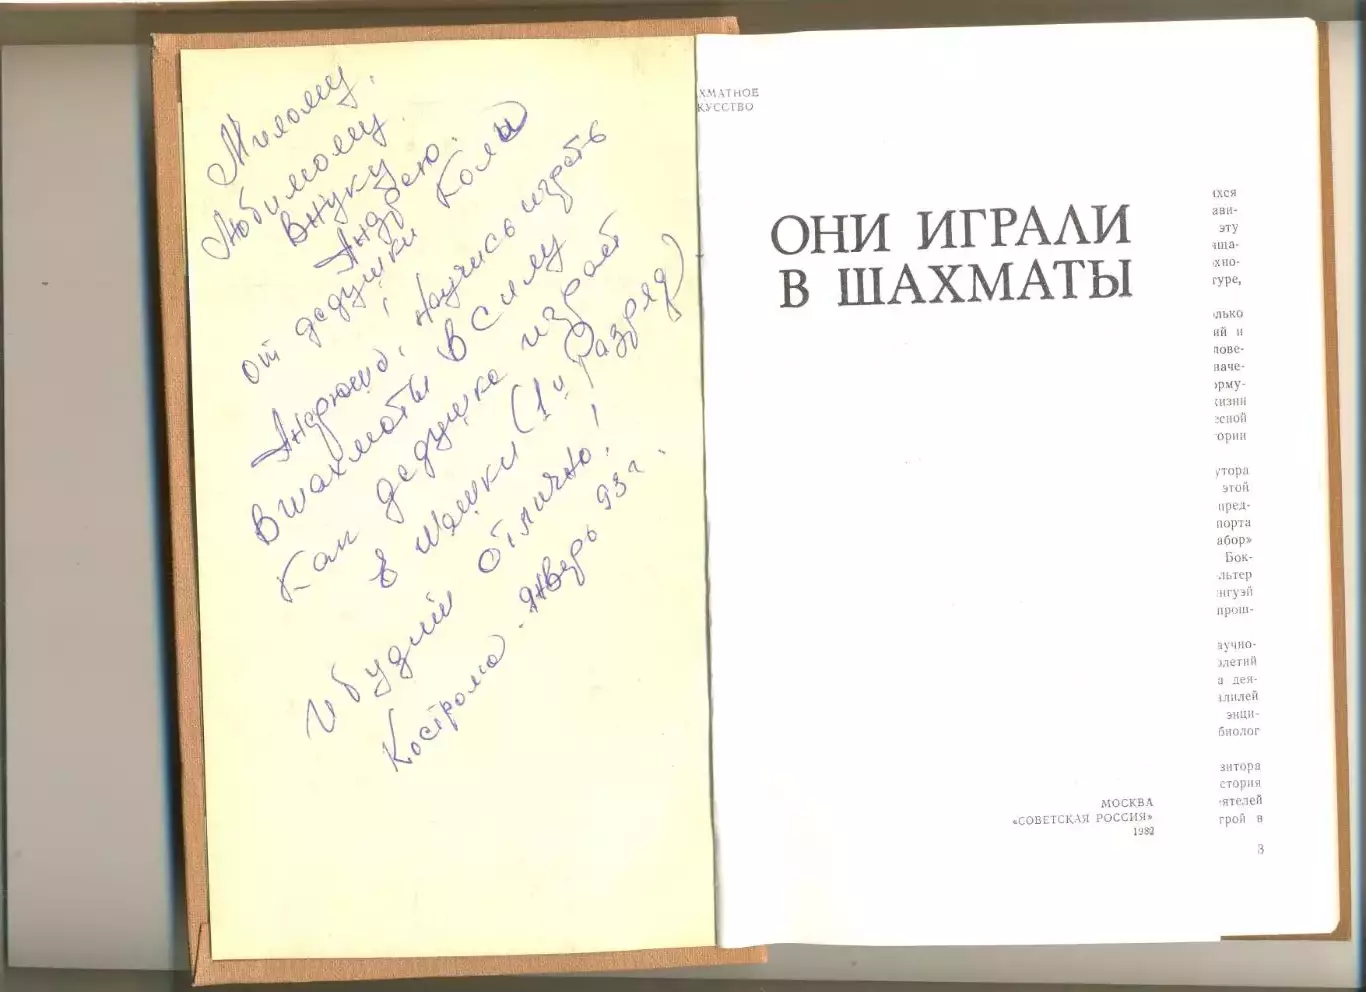 Милому,
Любимому.
Внуку
Андрею.
от дедушки Коли
Андрюша, научись играть
в шахматы в силу
как дедушка играет
в шашки (1й разряд)
и будет отлично!
Кострома. январь 93 г.
ХМАТНОЕ
КУССТВО
ОНИ ИГРАЛИ
В ШАХМАТЫ
МОСКВА
«СОВЕТСКАЯ РОССИЯ»
1982
хся
ави-
эту
ища-
хно-
гуре,
олько
ий и
лове-
наче-
орму-
жизни
есной
ории
утора
этой
пред-
порта
абор»
Бок-
льтер
нгуэй
прош-
аучно-
олетий
а дея-
алилей
энци-
биолог
зитора
стория
ятелей
грой в
3